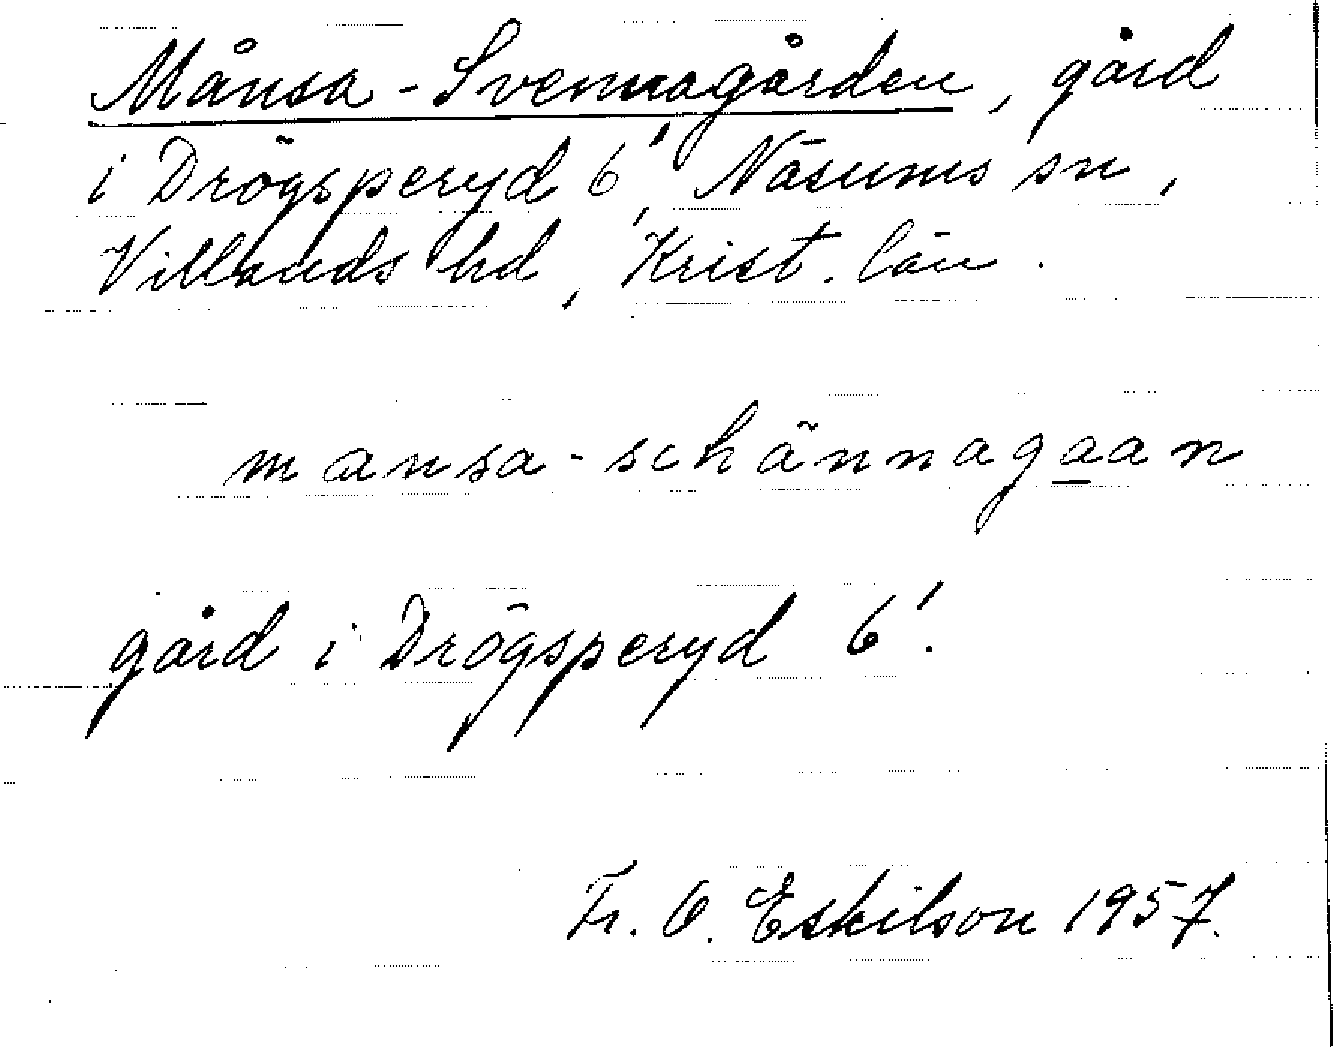 Månsa-Svennagården, gård
i Drögsperyd 6', Näsums sn,
Villands hd, Krist. län.
mansa-schännagaan
gård i Drögsperyd 6'.
Fr. O. Eskilson 1957.